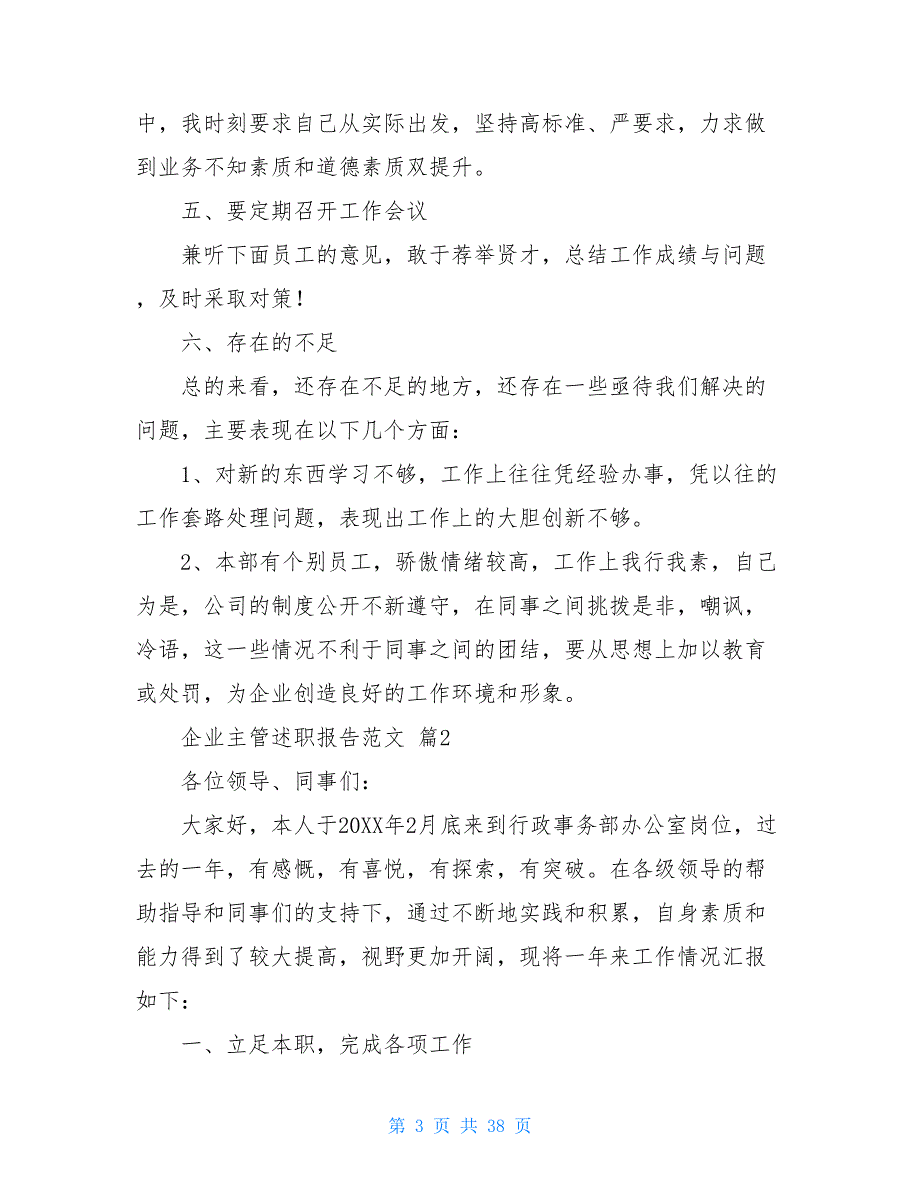 中，我时刻要求自己从实际出发，坚持高标准、严要求，力求做
到业务不知素质和道德素质双提升。
五、要定期召开工作会议
兼听下面员工的意见，敢于荐举贤才，总结工作成绩与问题
，及时采取对策！
六、存在的不足
总的来看，还存在不足的地方，还存在一些亟待我们解决的
问题，主要表现在以下几个方面：
1、对新的东西学习不够，工作上往往凭经验办事，凭以往的
工作套路处理问题，表现出工作上的大胆创新不够。
2、本部有个别员工，骄傲情绪较高，工作上我行我素，自己
为是，公司的制度公开不新遵守，在同事之间挑拨是非，嘲讽，
冷语，这一些情况不利于同事之间的团结，要从思想上加以教育
或处罚，为企业创造良好的工作环境和形象。
企业主管述职报告范文 篇2
各位领导、同事们：
大家好，本人于20XX年2月底来到行政事务部办公室岗位，过
去的一年，有感慨，有喜悦，有探索，有突破。在各级领导的帮
助指导和同事们的支持下，通过不断地实践和积累，自身素质和
能力得到了较大提高，视野更加开阔，现将一年来工作情况汇报
如下：
一、立足本职，完成各项工作
第 3 页 共 38 页